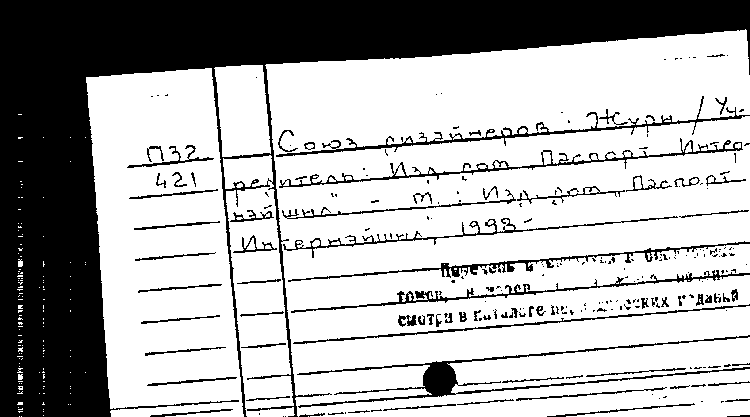 П32
421
Союз дизайнеров : Журн. / Уч-
редитель: Изд. дом „Паспорт Интер-
нэйшнл". - М. : Изд. дом „Паспорт
Интернэйшнл", 1998-
Перечень в библиотеке
томов,
смотри в каталоге периодических изданий